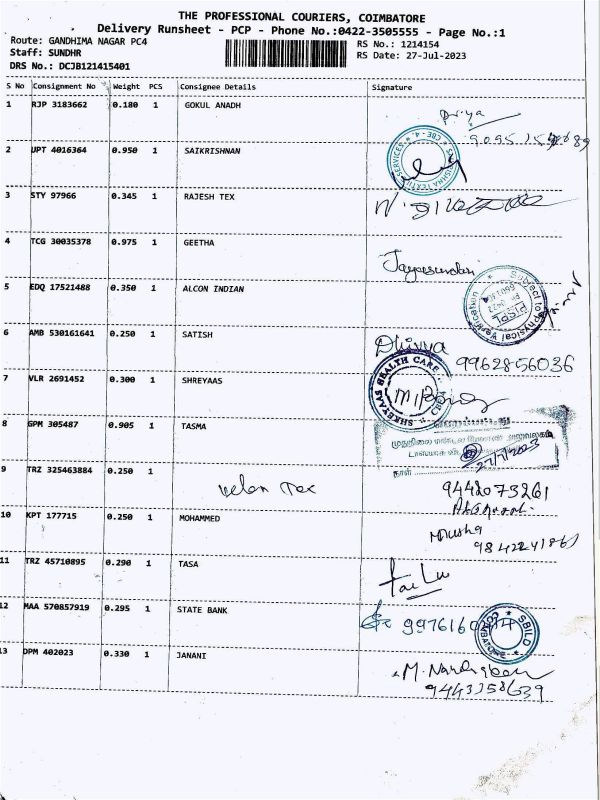 THE PROFESSIONAL COURIERS, COIMBATORE
Delivery Runsheet - PCP - Phone No.:0422-3505555 - Page No.:1
Route: GANDHIMA NAGAR PC4
RS No.: 1214154
Staff: SUNDHR
RS Date: 27-Jul-2023
DRS No.: DCJB121415401
S No Consignment No Weight PCS Consignee Details Signature
1 RJP 3183662 0.180 1 GOKUL ANADH
Priya
2 UPT 4016364 0.950 1 SAIKRISHNAN
3 STY 97966 0.345 1 RAJESH TEX
4 TCG 30035378 0.975 1 GEETHA
Jayasundari
5 EDQ 17521488 0.350 1 ALCON INDIAN
Subject to Physical Verification
6 AMB 530161641 0.250 1 SATISH
Dhivya
9962856036
7 VLR 2691452 0.300 1 SHREYAAS
SHREYAAS HEALTH CARE
8 GPM 305487 0.905 1 TASMA
நாள்
27/7/2023
9 TRZ 325463884 0.250 1
velan Tex
9442073261
10 KPT 177715 0.250 1 MOHAMMED
11 TRZ 45710895 0.290 1 TASA
12 MAA 570857919 0.295 1 STATE BANK
SBILD
COIMBATORE
13 DPM 402023 0.330 1 JANANI
9443358639